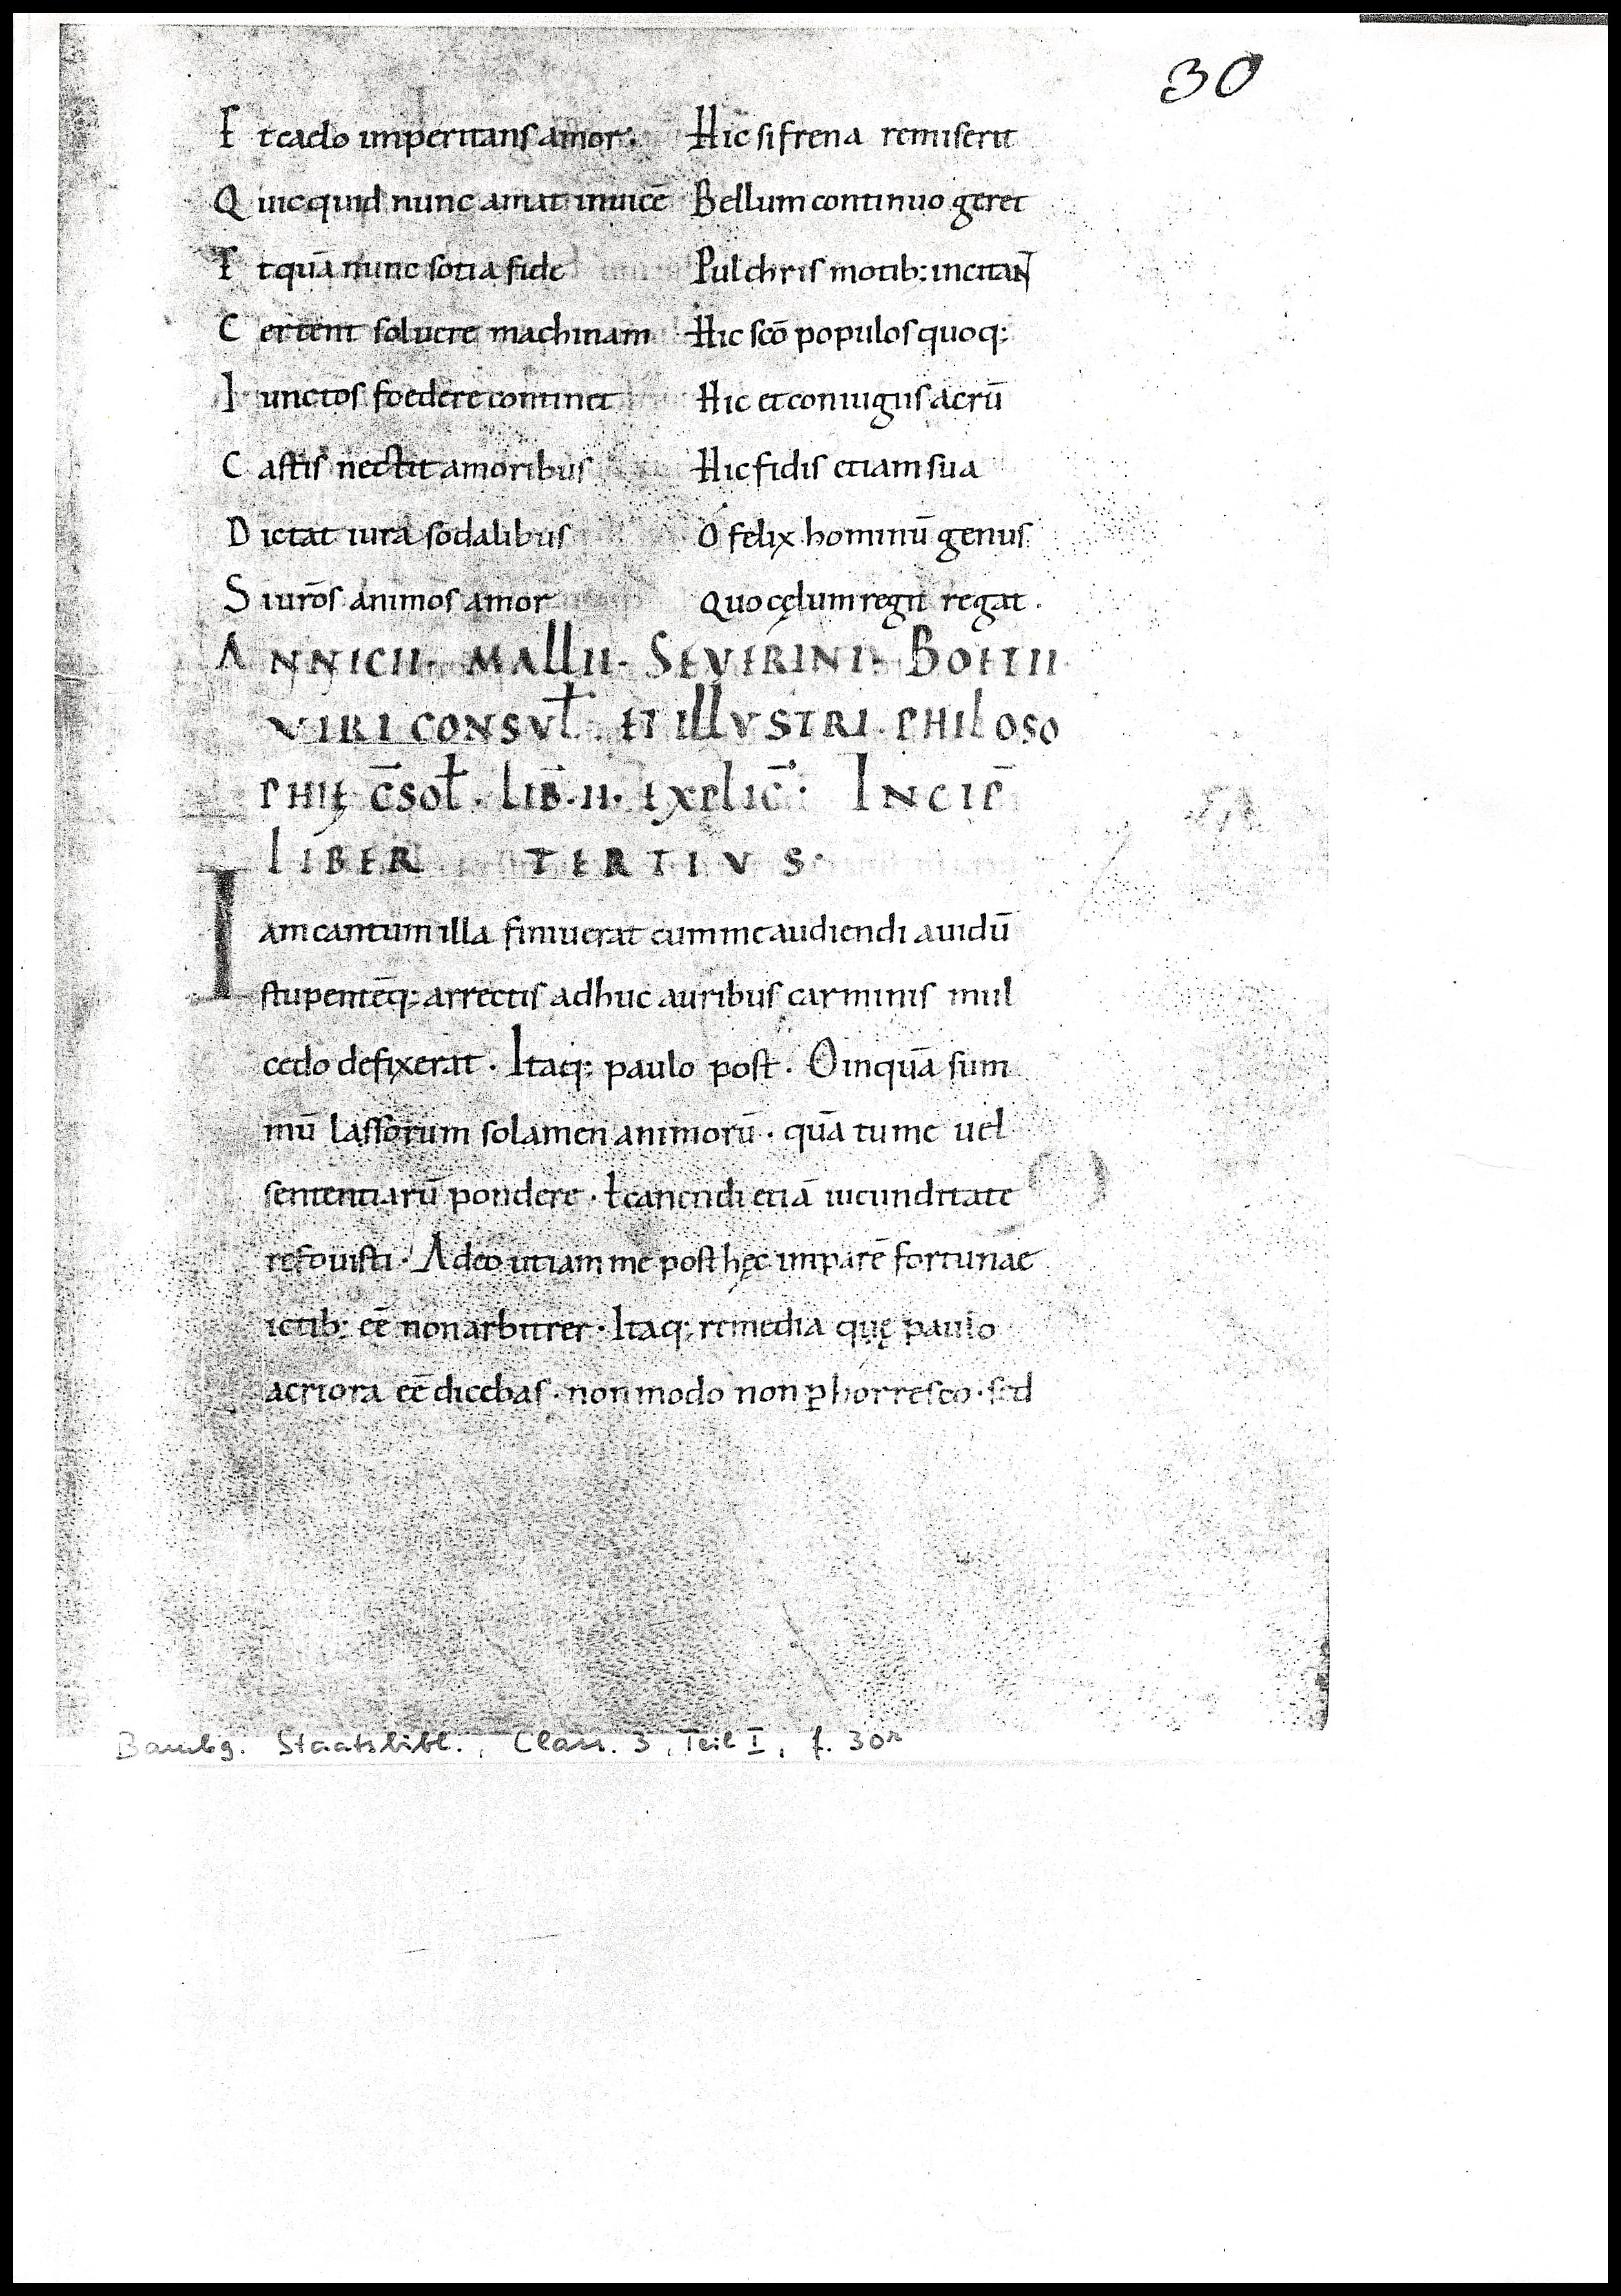 30
Et caelo imperitans amor· Hic si frena remiserit
Quicquid nunc amat inuicē Bellum continuo geret
Et quā nunc sotia fide Pulchris motib: incitant
Certent soluere machinam Hic scō populos quoq:
Iunctos foedere continet Hic et coniugiis acrū
Castis nectit amoribus Hic fidis etiam sua
Dictat iura sodalibus O felix hominū genus
Si urōs animos amor Quo cęlum regit regat.
ANNICII· MALLII· SEVERINI· BOETII
VIRI CONSUŁ· ET ILLVSTRI· PHILOSO
PHIĘ C̄SOŁ· LIB̄·II· EXPLIC̄· INCIP̄
LIBER TERTIVS·
Iam cantum illa finiuerat cum me audiendi auidū
stupentēq: arrectis adhuc auribus carminis mul
cedo defixerat· Itaq: paulo post· O inquā sum
mū lassorum solamen animorū· quā tu me uel
sententiarū pondere· ł canendi etiā iucunditate
refouisti· Adeo ut iam me post hęc imparē fortunae
ictib: eē non arbitrer· Itaq: remedia quę paulo
acriora eē dicebas· non modo non ꝑhorresco· sed
Bambg. Staatsbibl., Class. 3, Teil I, f. 30r